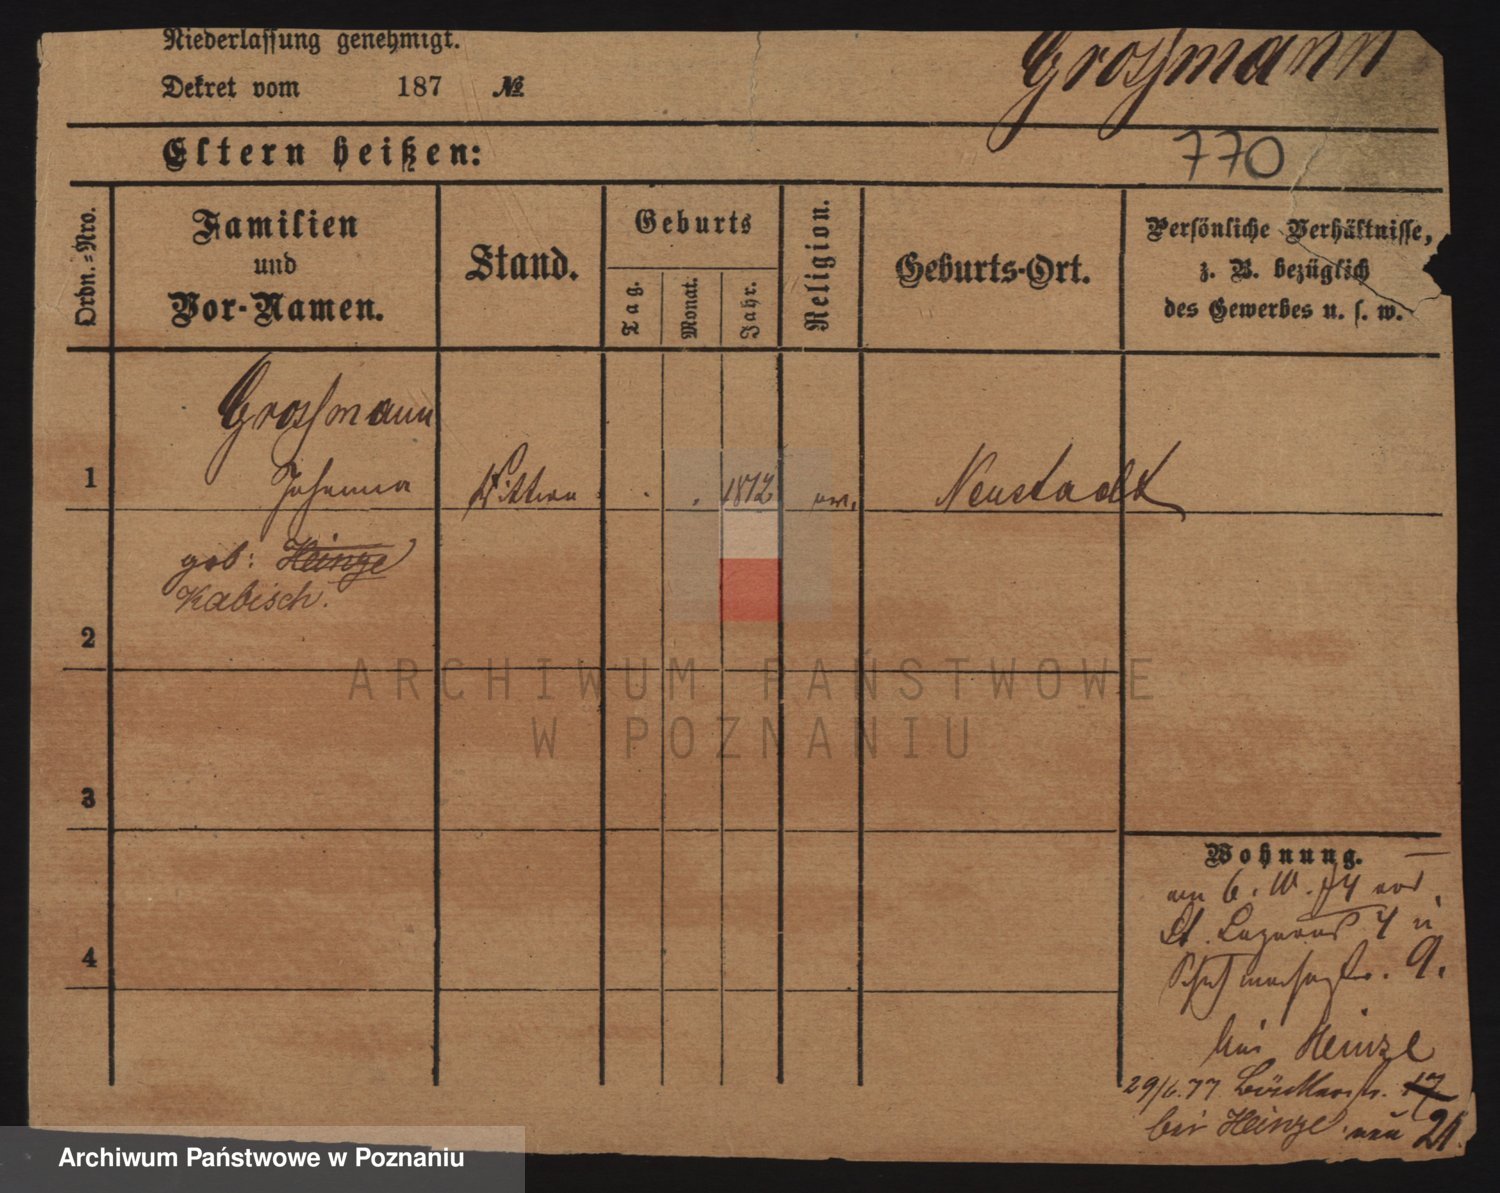 Niederlassung genehmigt.
Dekret vom 187 №
Grossmann
Eltern heißen:
770
Ordn.=Nro.
Familien
und
Vor-Namen.
Stand.
Geburts
Tag.
Monat.
Jahr.
Religion.
Geburts-Ort.
Persönliche Verhältnisse,
z. B. bezüglich
des Gewerbes u. s. w.
Grossmann
1 Johanna Wittwe 1812 ev. Neustadt
geb: Heinze
Kabisch.
2
ARCHIWUM PAŃSTWOWE
W POZNANIU
3
Wohnung.
4
St. Lazarus 4 u
9.
bei Heinze
29/6.77 17
bei Heinze neu 21
Archiwum Państwowe w Poznaniu